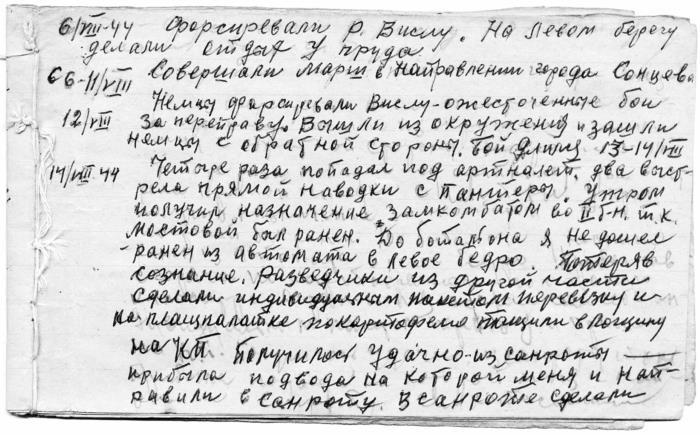 6/VIII-44 Форсировали р. Вислу. На левом берегу
делали отдых у пруда.
С 6-11/VIII Совершали марш в направлении города Сонцева
Немцы форсировали Вислу-ожесточенные бои
12/VIII за переправу. Вышли из окружения и зашли
немцу с обратной стороны. Бой длился 13-14/VIII
14/VIII 44 Четыре раза попадал под артналет. два выст-
рела прямой наводки с Пантеры. Утром
получил назначение замкомбатом во II б-н, т.к.
Мостовой был ранен. До батальона я не дошел
ранен из автомата в левое бедро. Потеряв
сознание. Разведчики из другой части
сделали индивидуальным пакетом перевязку и
на плащпалатке по картофелю тащили в лощину
на КП. Получилось удачно-из санроты
прибыла подвода на которой меня и нап-
равили в санроту. В санроте сделали